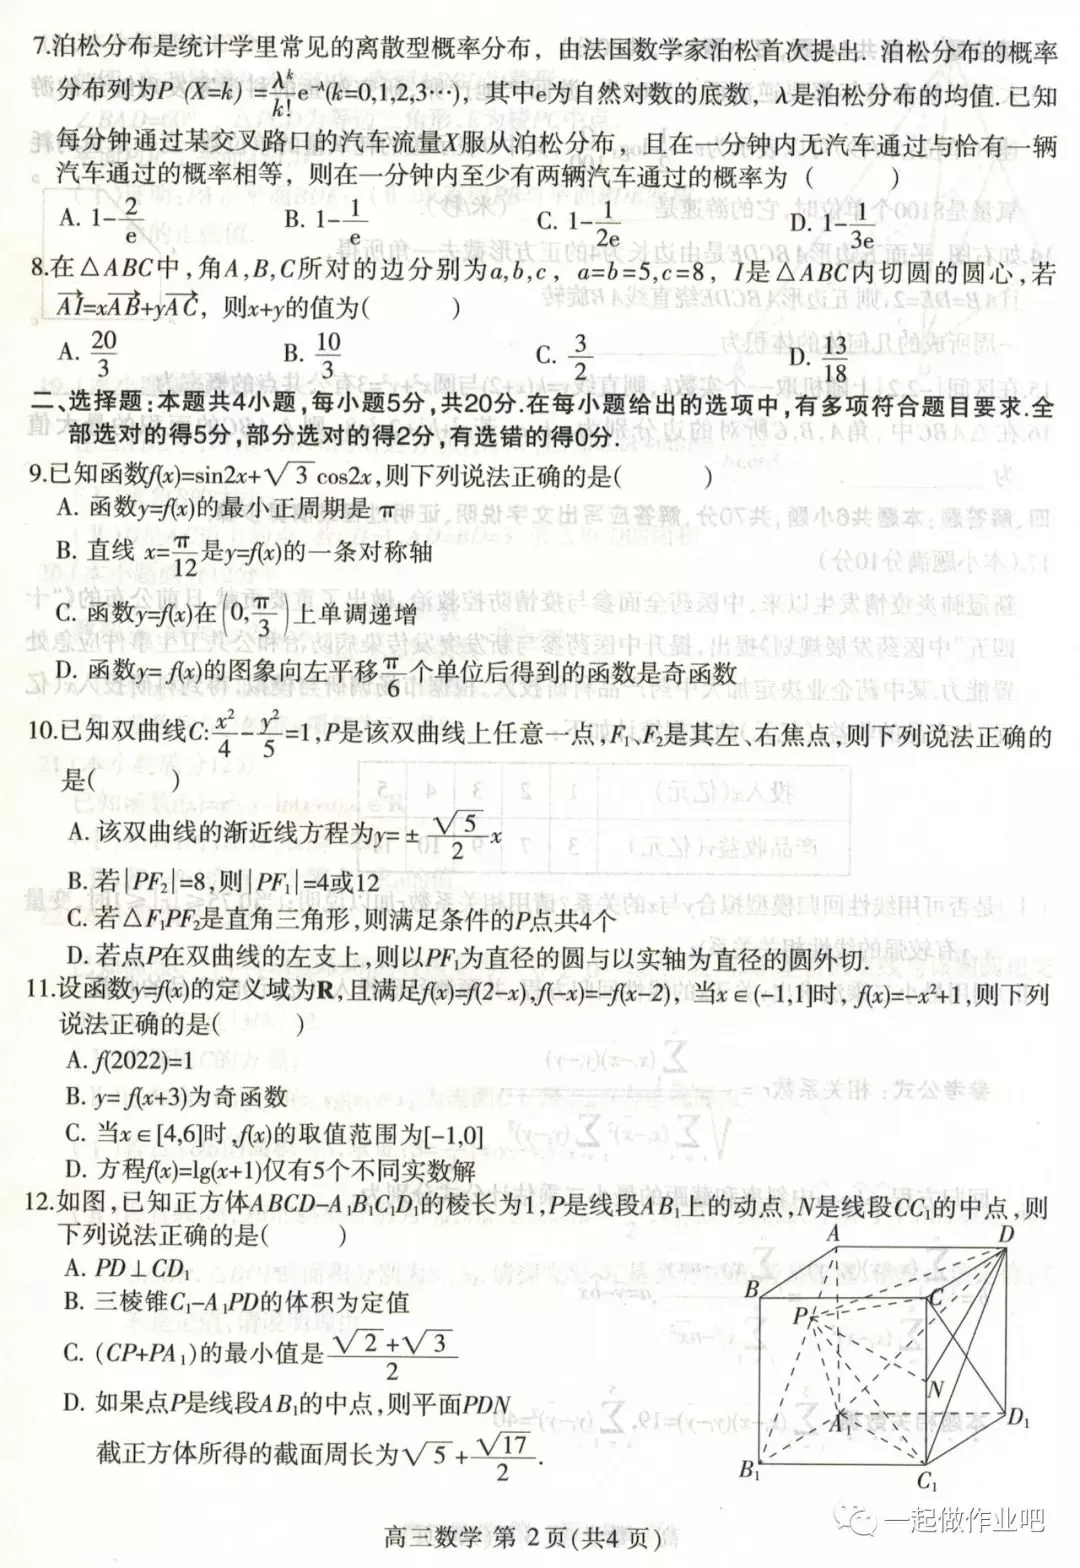 7.泊松分布是统计学里常见的离散型概率分布，由法国数学家泊松首次提出. 泊松分布的概率
分布列为P (X=k) =λ^k/k! e^-λ(k=0,1,2,3…)，其中e为自然对数的底数，λ是泊松分布的均值. 已知
每分钟通过某交叉路口的汽车流量X服从泊松分布，且在一分钟内无汽车通过与恰有一辆
汽车通过的概率相等，则在一分钟内至少有两辆汽车通过的概率为（　　）
A. 1-2/e B. 1-1/e C. 1-1/2e D. 1-1/3e
8.在△ABC中,角A,B,C所对的边分别为a,b,c，a=b=5,c=8，I是△ABC内切圆的圆心,若
AI=xAB+yAC，则x+y的值为(　　)
A. 20/3 B. 10/3 C. 3/2 D. 13/18
二、选择题:本题共4小题,每小题5分,共20分.在每小题给出的选项中,有多项符合题目要求.全
部选对的得5分,部分选对的得2分,有选错的得0分.
9.已知函数f(x)=sin2x+√3cos2x,则下列说法正确的是(　　)
A. 函数y=f(x)的最小正周期是π
B. 直线 x=π/12是y=f(x)的一条对称轴
C. 函数y=f(x)在(0,π/3)上单调递增
D. 函数y= f(x)的图象向左平移π/6个单位后得到的函数是奇函数
10.已知双曲线C:x²/4-y²/5=1,P是该双曲线上任意一点,F₁、F₂是其左、右焦点,则下列说法正确的
是(　　)
A. 该双曲线的渐近线方程为y=±√5/2 x
B. 若|PF₂|=8,则|PF₁|=4或12
C. 若△F₁PF₂是直角三角形,则满足条件的P点共4个
D. 若点P在双曲线的左支上,则以PF₁为直径的圆与以实轴为直径的圆外切.
11.设函数y=f(x)的定义域为R,且满足f(x)=f(2-x),f(-x)=-f(x-2)，当x∈(-1,1]时，f(x)=-x²+1,则下列
说法正确的是(　　)
A. f(2022)=1
B. y= f(x+3)为奇函数
C. 当x∈[4,6]时,f(x)的取值范围为[-1,0]
D. 方程f(x)=lg(x+1)仅有5个不同实数解
12.如图,已知正方体ABCD-A₁B₁C₁D₁的棱长为1,P是线段AB₁上的动点,N是线段CC₁的中点,则
下列说法正确的是(　　)
A. PD⊥CD₁
B. 三棱锥C₁-A₁PD的体积为定值
C. (CP+PA₁)的最小值是(√2+√3)/2
D. 如果点P是线段AB₁的中点,则平面PDN
截正方体所得的截面周长为√5+√17/2.
A
D
B
C
P
N
A₁
D₁
B₁
C₁
一起做作业吧
高三数学 第 2 页(共4 页)